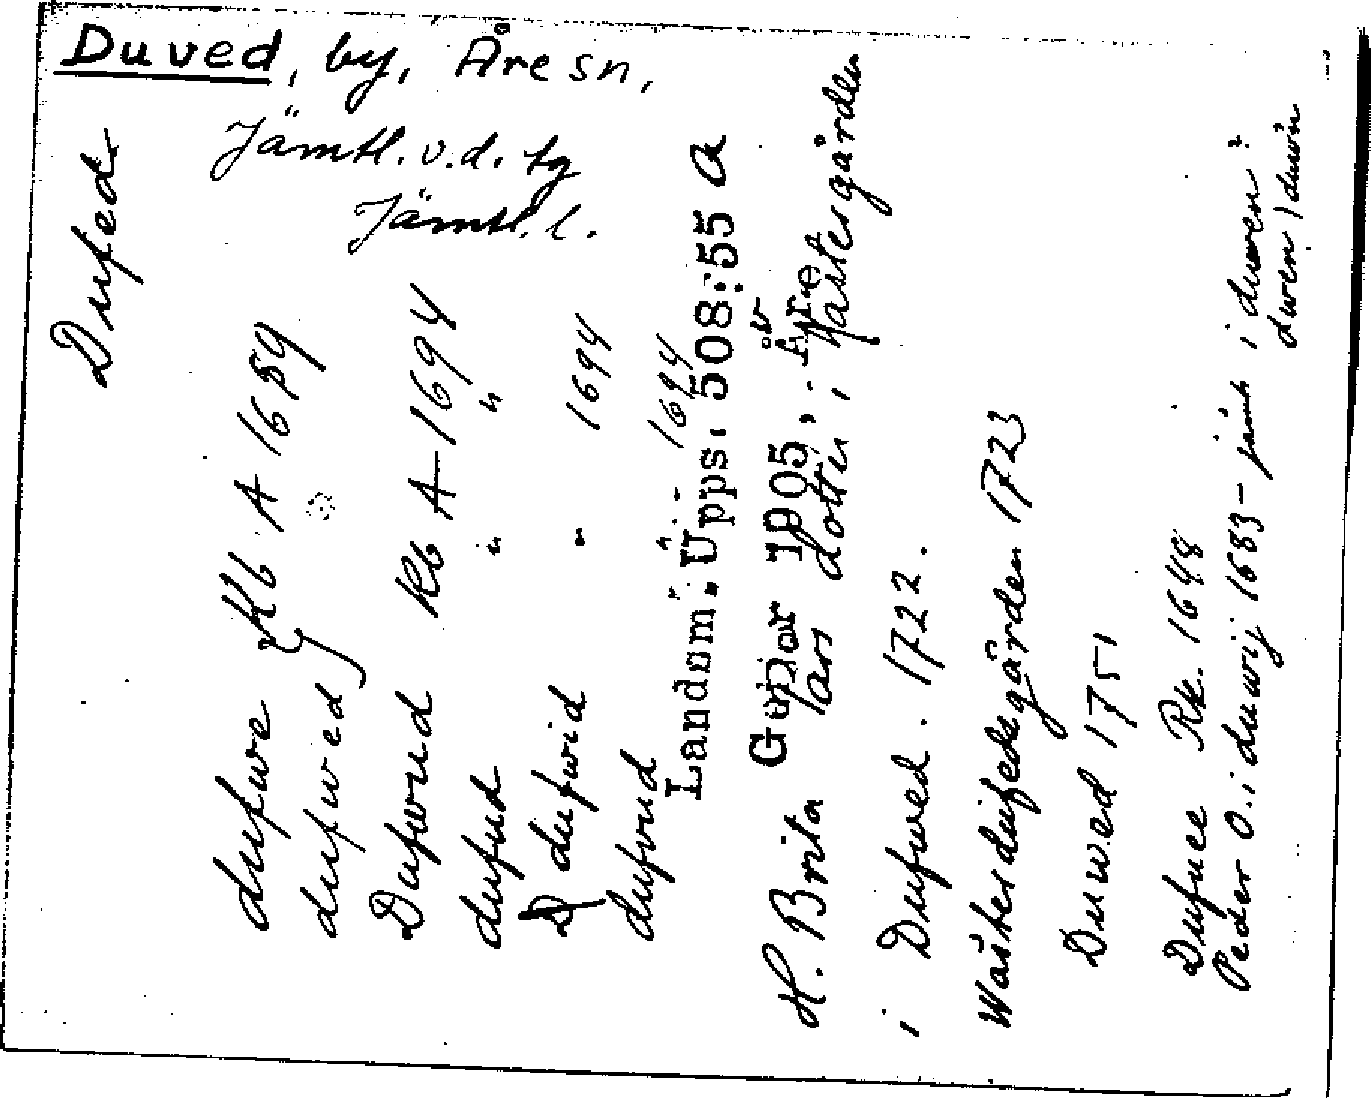 Duved, by, Åre sn,
Jämtl. v.d. tg
Jämtl. l.
Dufed
dufwe } Kb A 1659
dufwed
Dufwud Kb A 1694
dufud " " "
dufwid " 1694
dufvud " 1694
Landsm. Upps. 508:55 a
Göjior 1905, : Åre
H. Brita Lars dotter i Wästergården
i Dufwed. 1722.
Wästerdufedsgården 1723
Duwed 1751
Dufuee Rk. 1648
Peder O. i duwij 1683 - jämt i duwen?
duwen / duwin